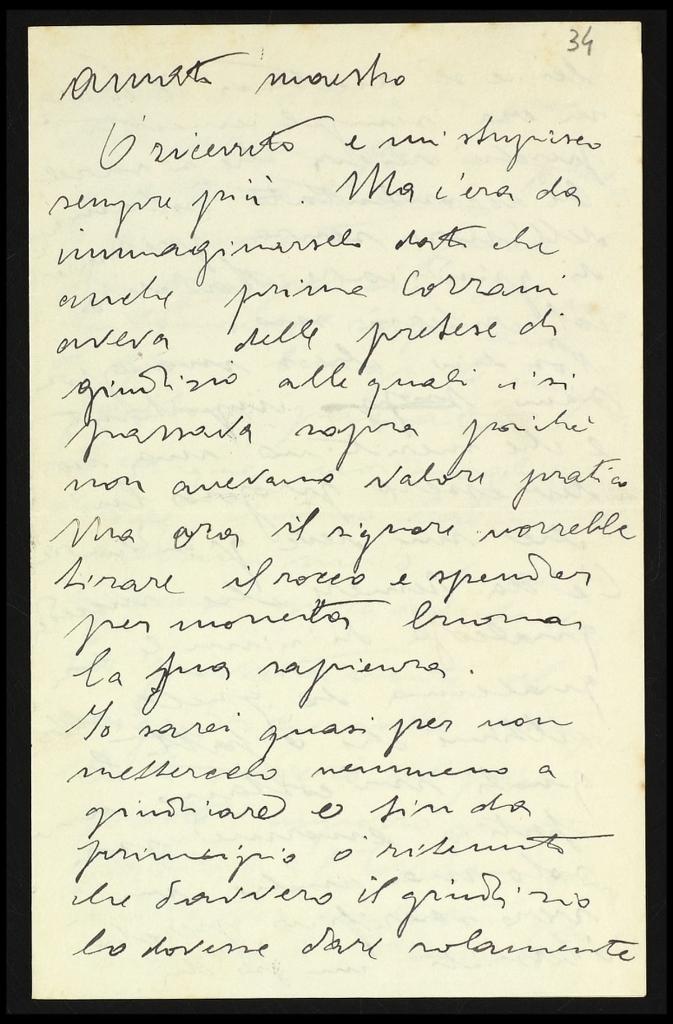 34
amato maestro
Ò ricevuto e mi stupisco
sempre più. Ma c'era da
immaginarselo dato che
anche prima Corrani
aveva delle pretese di
giudizio alle quali ci si
passava sopra poiché
non avevano valore pratico
Ma ora il signore vorrebbe
tirare il socco e spender
per moneta buona
la sua sapienza.
Io sarei quasi per non
mettercelo nemmeno a
giudicare e fin da
principio ò ritenuto
che davvero il giudizio
lo dovesse dare solamente